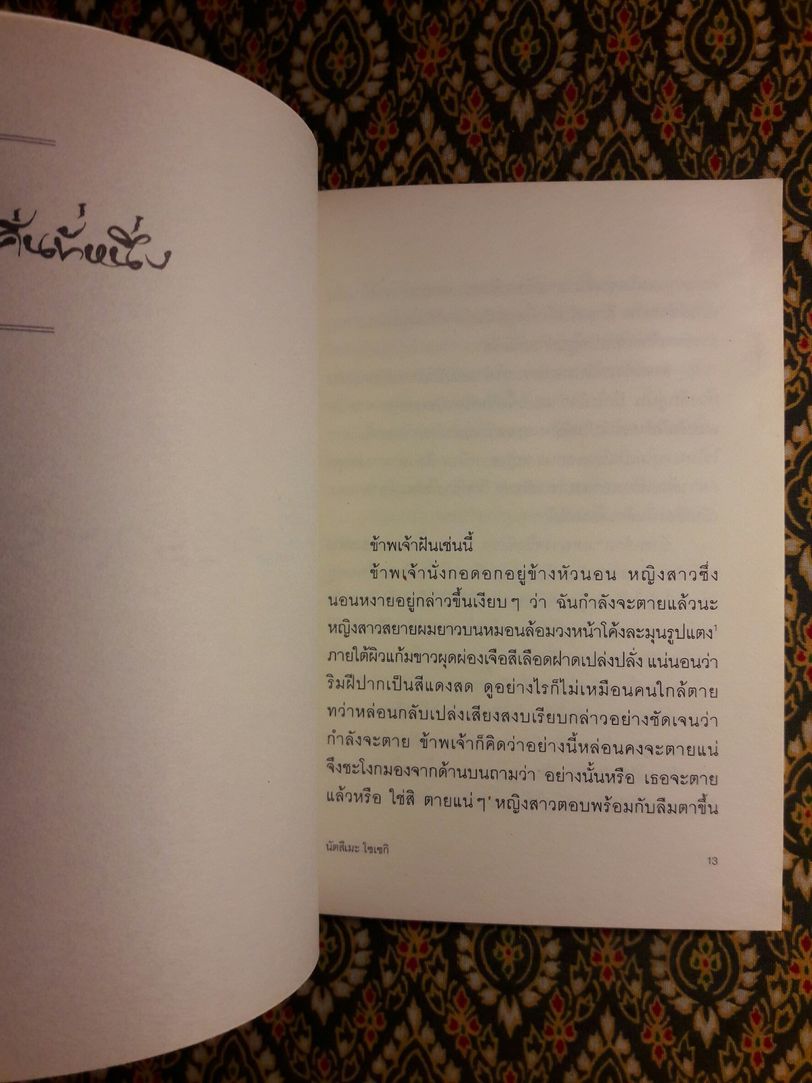 คืนที่หนึ่ง
ข้าพเจ้าฝันเช่นนี้
ข้าพเจ้านั่งกอดอกอยู่ข้างหัวนอน หญิงสาวซึ่ง
นอนหงายอยู่กล่าวขึ้นเงียบๆ ว่า ฉันกำลังจะตายแล้วนะ
หญิงสาวสยายผมยาวบนหมอนล้อมวงหน้าโค้งละมุนรูปแตง¹
ภายใต้ผิวแก้มขาวผุดผ่องเจือสีเลือดฝาดเปล่งปลั่ง แน่นอนว่า
ริมฝีปากเป็นสีแดงสด ดูอย่างไรก็ไม่เหมือนคนใกล้ตาย
ทว่าหล่อนกลับเปล่งเสียงสงบเรียบกล่าวอย่างชัดเจนว่า
กำลังจะตาย ข้าพเจ้าก็คิดว่าอย่างนี้หล่อนคงจะตายแน่
จึงชะโงกมองจากด้านบนถามว่า อย่างนั้นหรือ เธอจะตาย
แล้วหรือ ใช่สิ ตายแน่ๆ หญิงสาวตอบพร้อมกับลืมตาขึ้น
นัตสึเมะ โซเซกิ
13